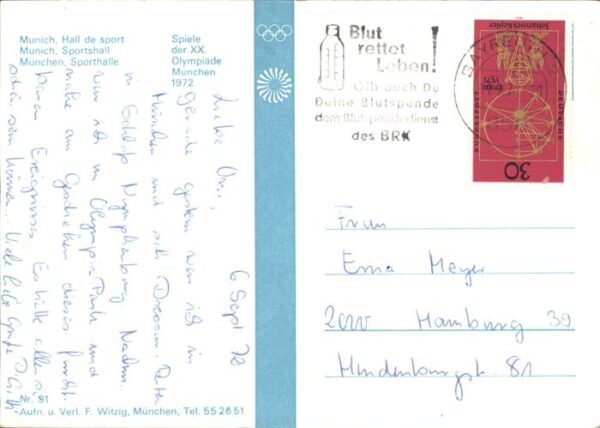 Munich, Hall de sport
Munich, Sportshall
München, Sporthalle
Spiele
der XX.
Olympiade
München
1972
6. Sept 72
Liebe Omi,
Gerade gestern war ich in
München und sah
in Schloß Nymphenburg. Nachm.
war ich im Olympia Park und
nahe am Geschehen dieses furcht-
baren Ereignisses. Es hätte alles so
schön sein können. Viele liebe Grüße
Nr. 91
Aufn. u. Verl. F. Witzig, München, Tel. 55 26 51
Blut
rettet
Leben!
Gib auch Du
Deine Blutspende
dem Blutspendedienst
des BRK
BAYREUTH
Johannes Kepler
1571
30
Frau
Erna Meyer
2000 Hamburg 39
Hindenburgstr. 81